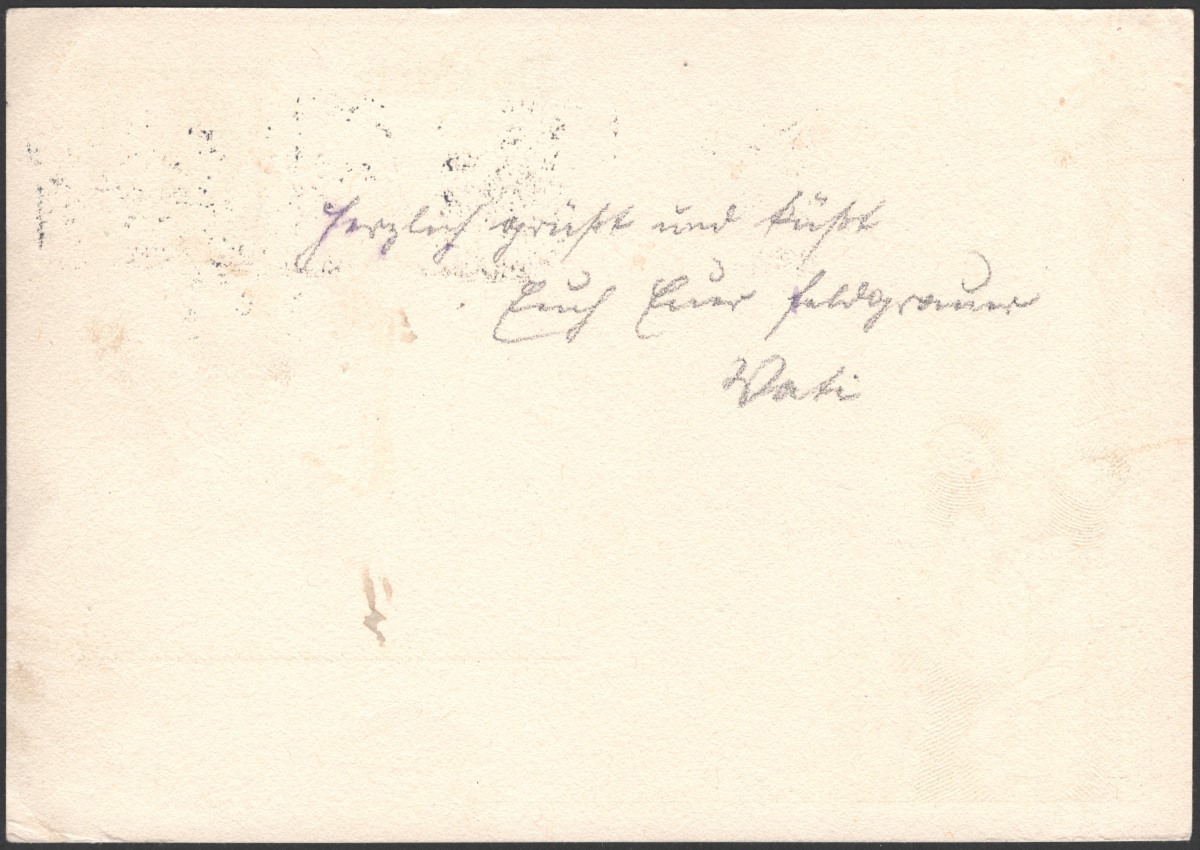 Herzlich grüßt und küßt
Euch Euer feldgrauer
Vati